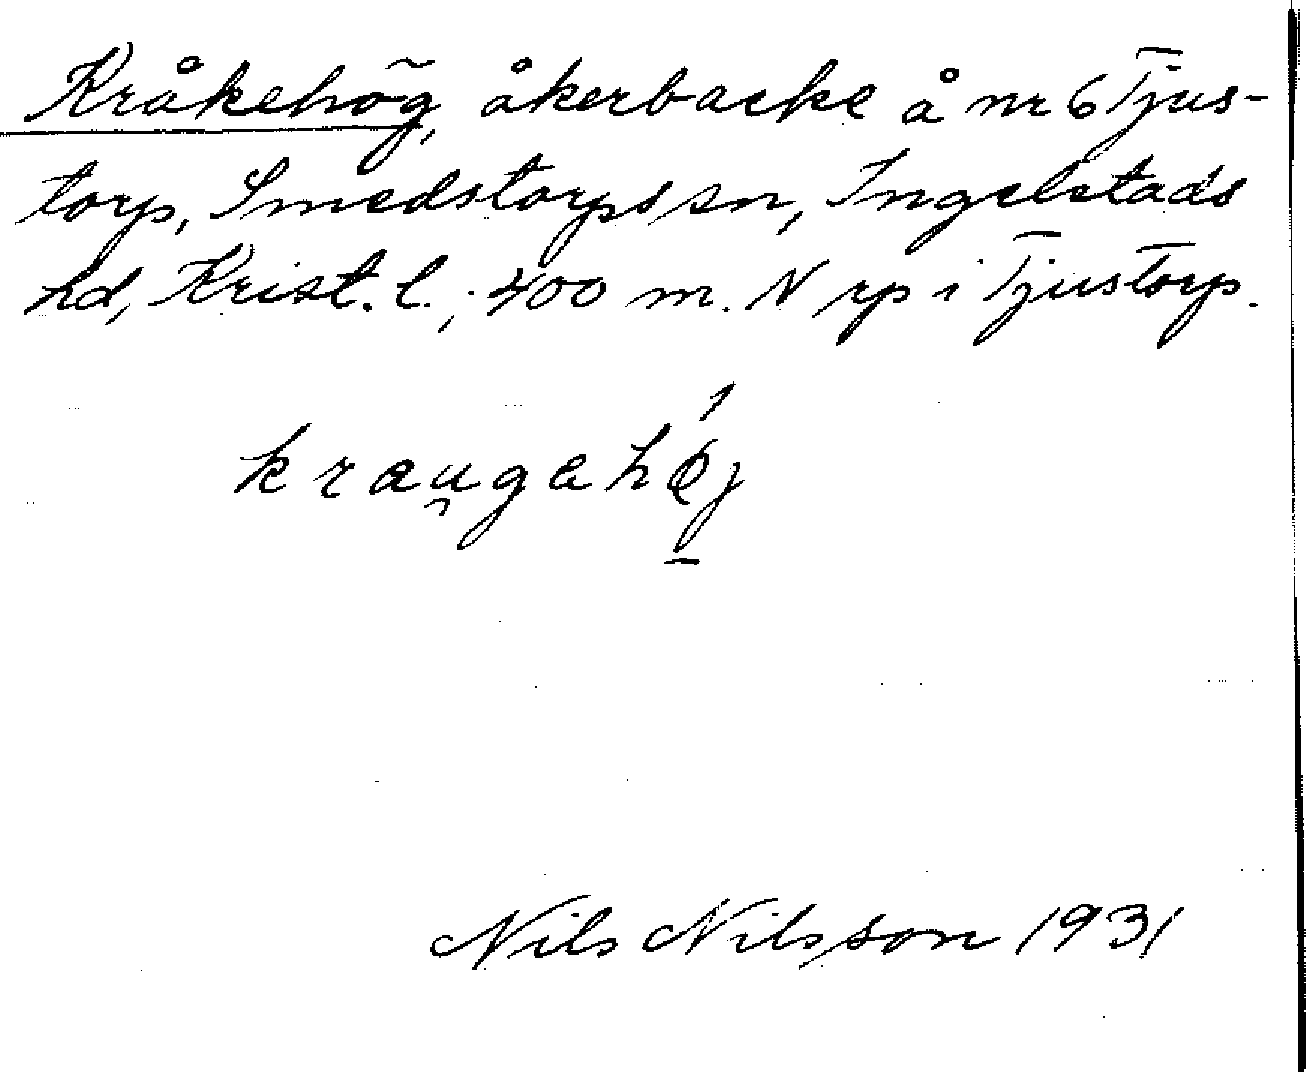 Kråkehög, åkerbacke å nr 6 Tjus-
torp, Smedstorps sn, Ingelstads
hd, Krist. l., 400 m. N rp i Tjustorp.
krau̯gahǿ̱j
Nils Nilsson 1931